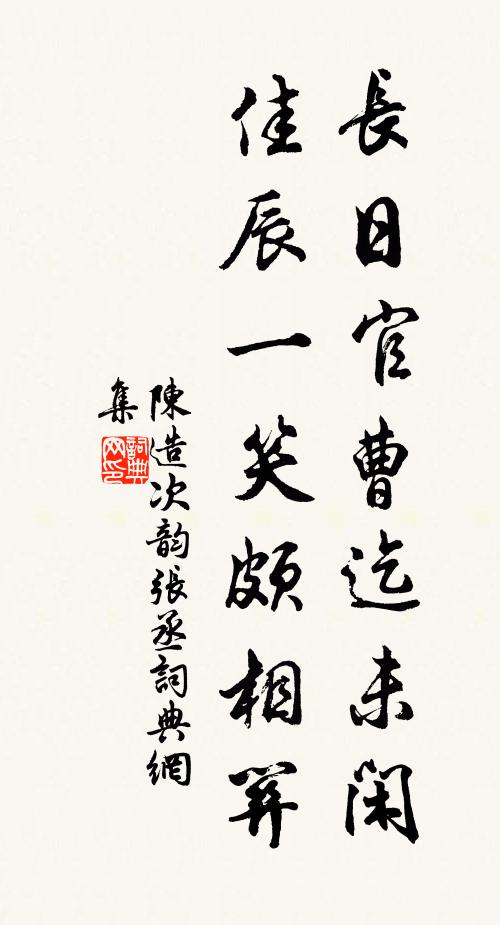 長日官曹迄未閑
佳辰一笑頗相關
陳造次韵張丞詞典網
集
詞典网印